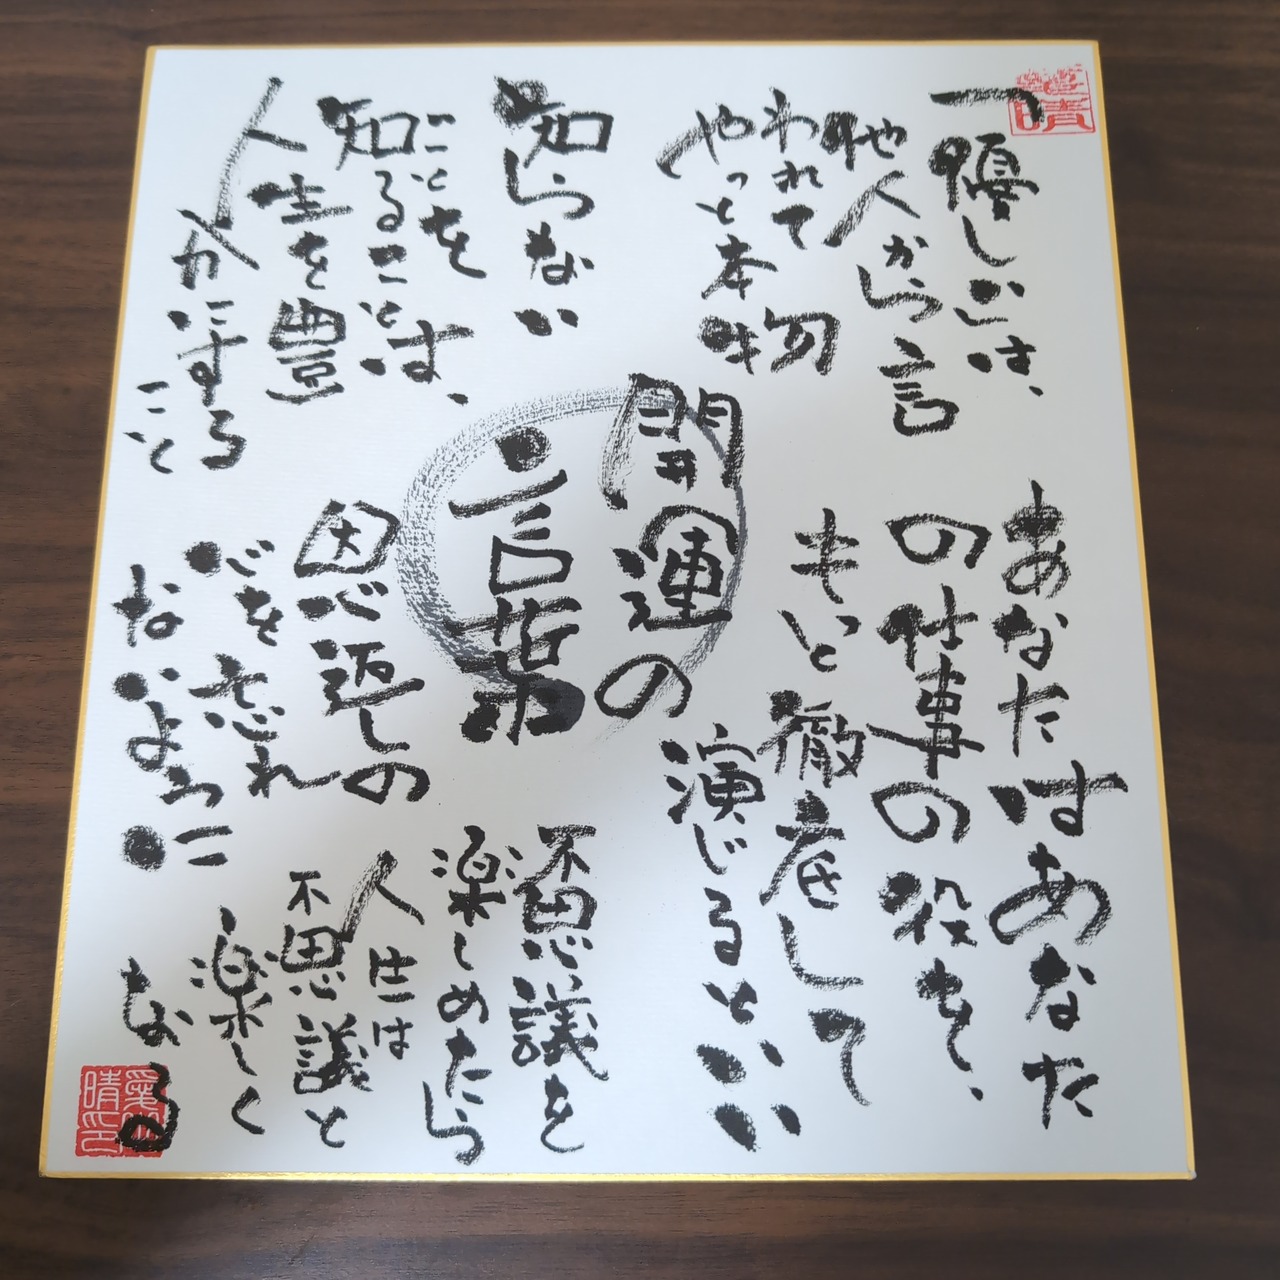 優しいは、
他人から言
われて
やっと本物
知らない
ことを
知ることは、
人生を豊
かにする
こと
開運の
言葉
あなたはあなた
の仕事の役を、
もっと徹底して
演じるといい
恩返しの
心を忘れ
ないように
不思議を
楽しめたら
人生は
不思議と
楽しく
なる